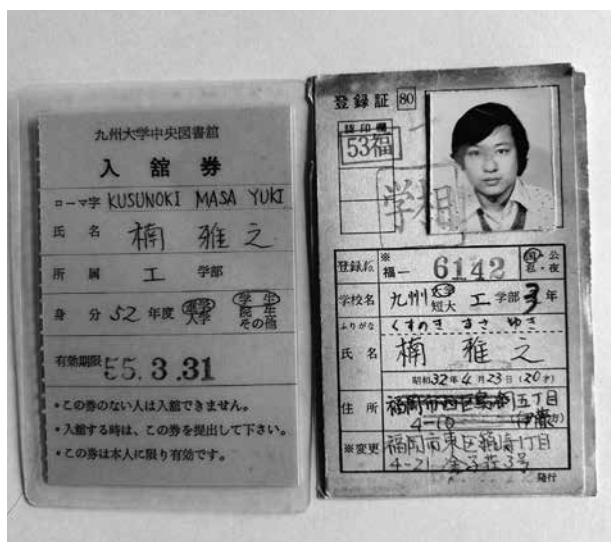 九州大学中央図書館
入館券
ローマ字 KUSUNOKI MASA YUKI
氏名 楠 雅之
所属 工 学部
身分 52年度 進学 大学 学生 院生 その他
有効期限 55.3.31
・この券のない人は入館できません。
・入館する時は、この券を提出して下さい。
・この券は本人に限り有効です。
登録証 80
検印欄
53福
学相
登録No. ※福－ 6142 国・公 私・夜
学校名 九州 大学 短大 工 学部 3年
ふりがな くすのき まさ ゆき
氏名 楠 雅之
昭和32年4月23日(20才)
住所 福岡市西区 五丁目
4-10
※変更 福岡市東区箱崎1丁目
4-21 3号
発行